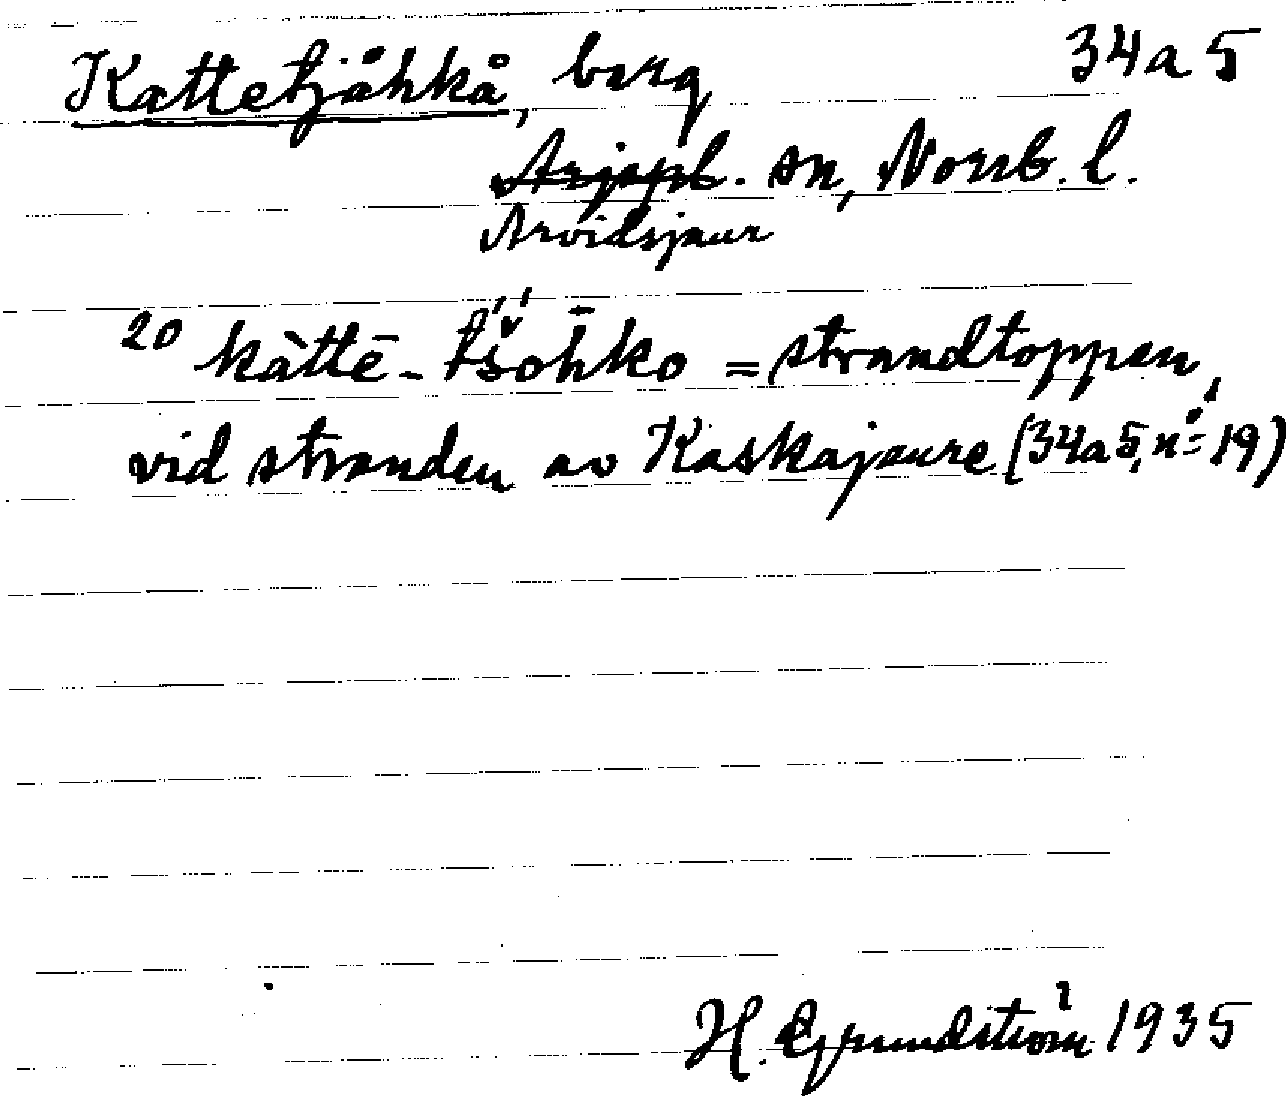 Kattetjåhkå, berg 34a5
Arjepl. sn, Norrb. l.
Arvidsjaur
20 kàttē-tš́ōhko = strandtoppen,
vid stranden av Kaskajaure (34a5, n:o 19)
H. Grundström 1935